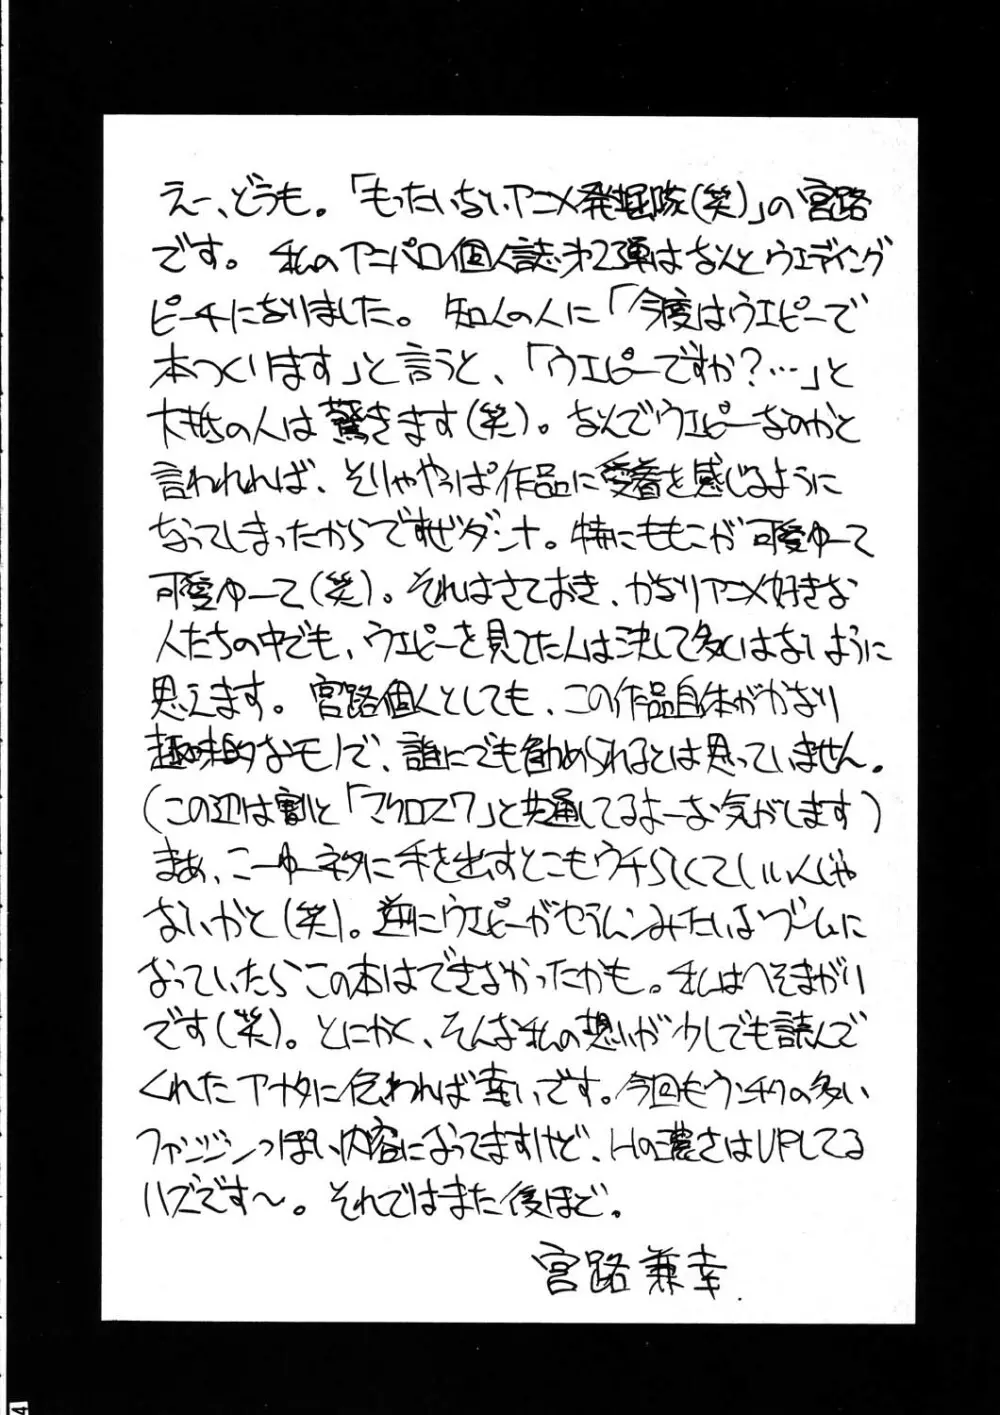 えー、どうも。「もったいないアニメ発掘隊(笑)」の宮路
です。私のアニパロ個人誌第2弾はなんとウエディング
ピーチになりました。知人の人に「今度はウエピーで
本つくります」と言うと、「ウエピーですか?…」と
大抵の人は驚きます(笑)。なんでウエピーなのかと
言われれば、そりゃやっぱ作品に愛着を感じるように
なってしまったからですぜダンナ。特にももこが可愛ゆーて
可愛ゆーて(笑)。それはさておき、かなりアニメ好きな
人たちの中でも、ウエピーを見てた人は決して多くはないように
思えます。宮路個人としても、この作品自体がかなり
趣味的なモノで、誰にでも勧められるとは思っていません。
(この辺は割と「マクロス7」と共通してるよーな気がします)
まあ、こーゆーネタに手を出すとこもウチらしくていいんじゃ
ないかと(笑)。逆にウエピーがセーラームーンみたいなブームに
なっていたらこの本はできなかったかも。私はへそまがり
です(笑)。とにかく、そんな私の想いが少しでも読んで
くれたアナタに伝われば幸いです。今回もウンチクの多い
ファンジンっぽい内容になってますけど、Hの濃さはUPしてる
ハズです〜。それではまた後ほど。
宮路兼幸
4